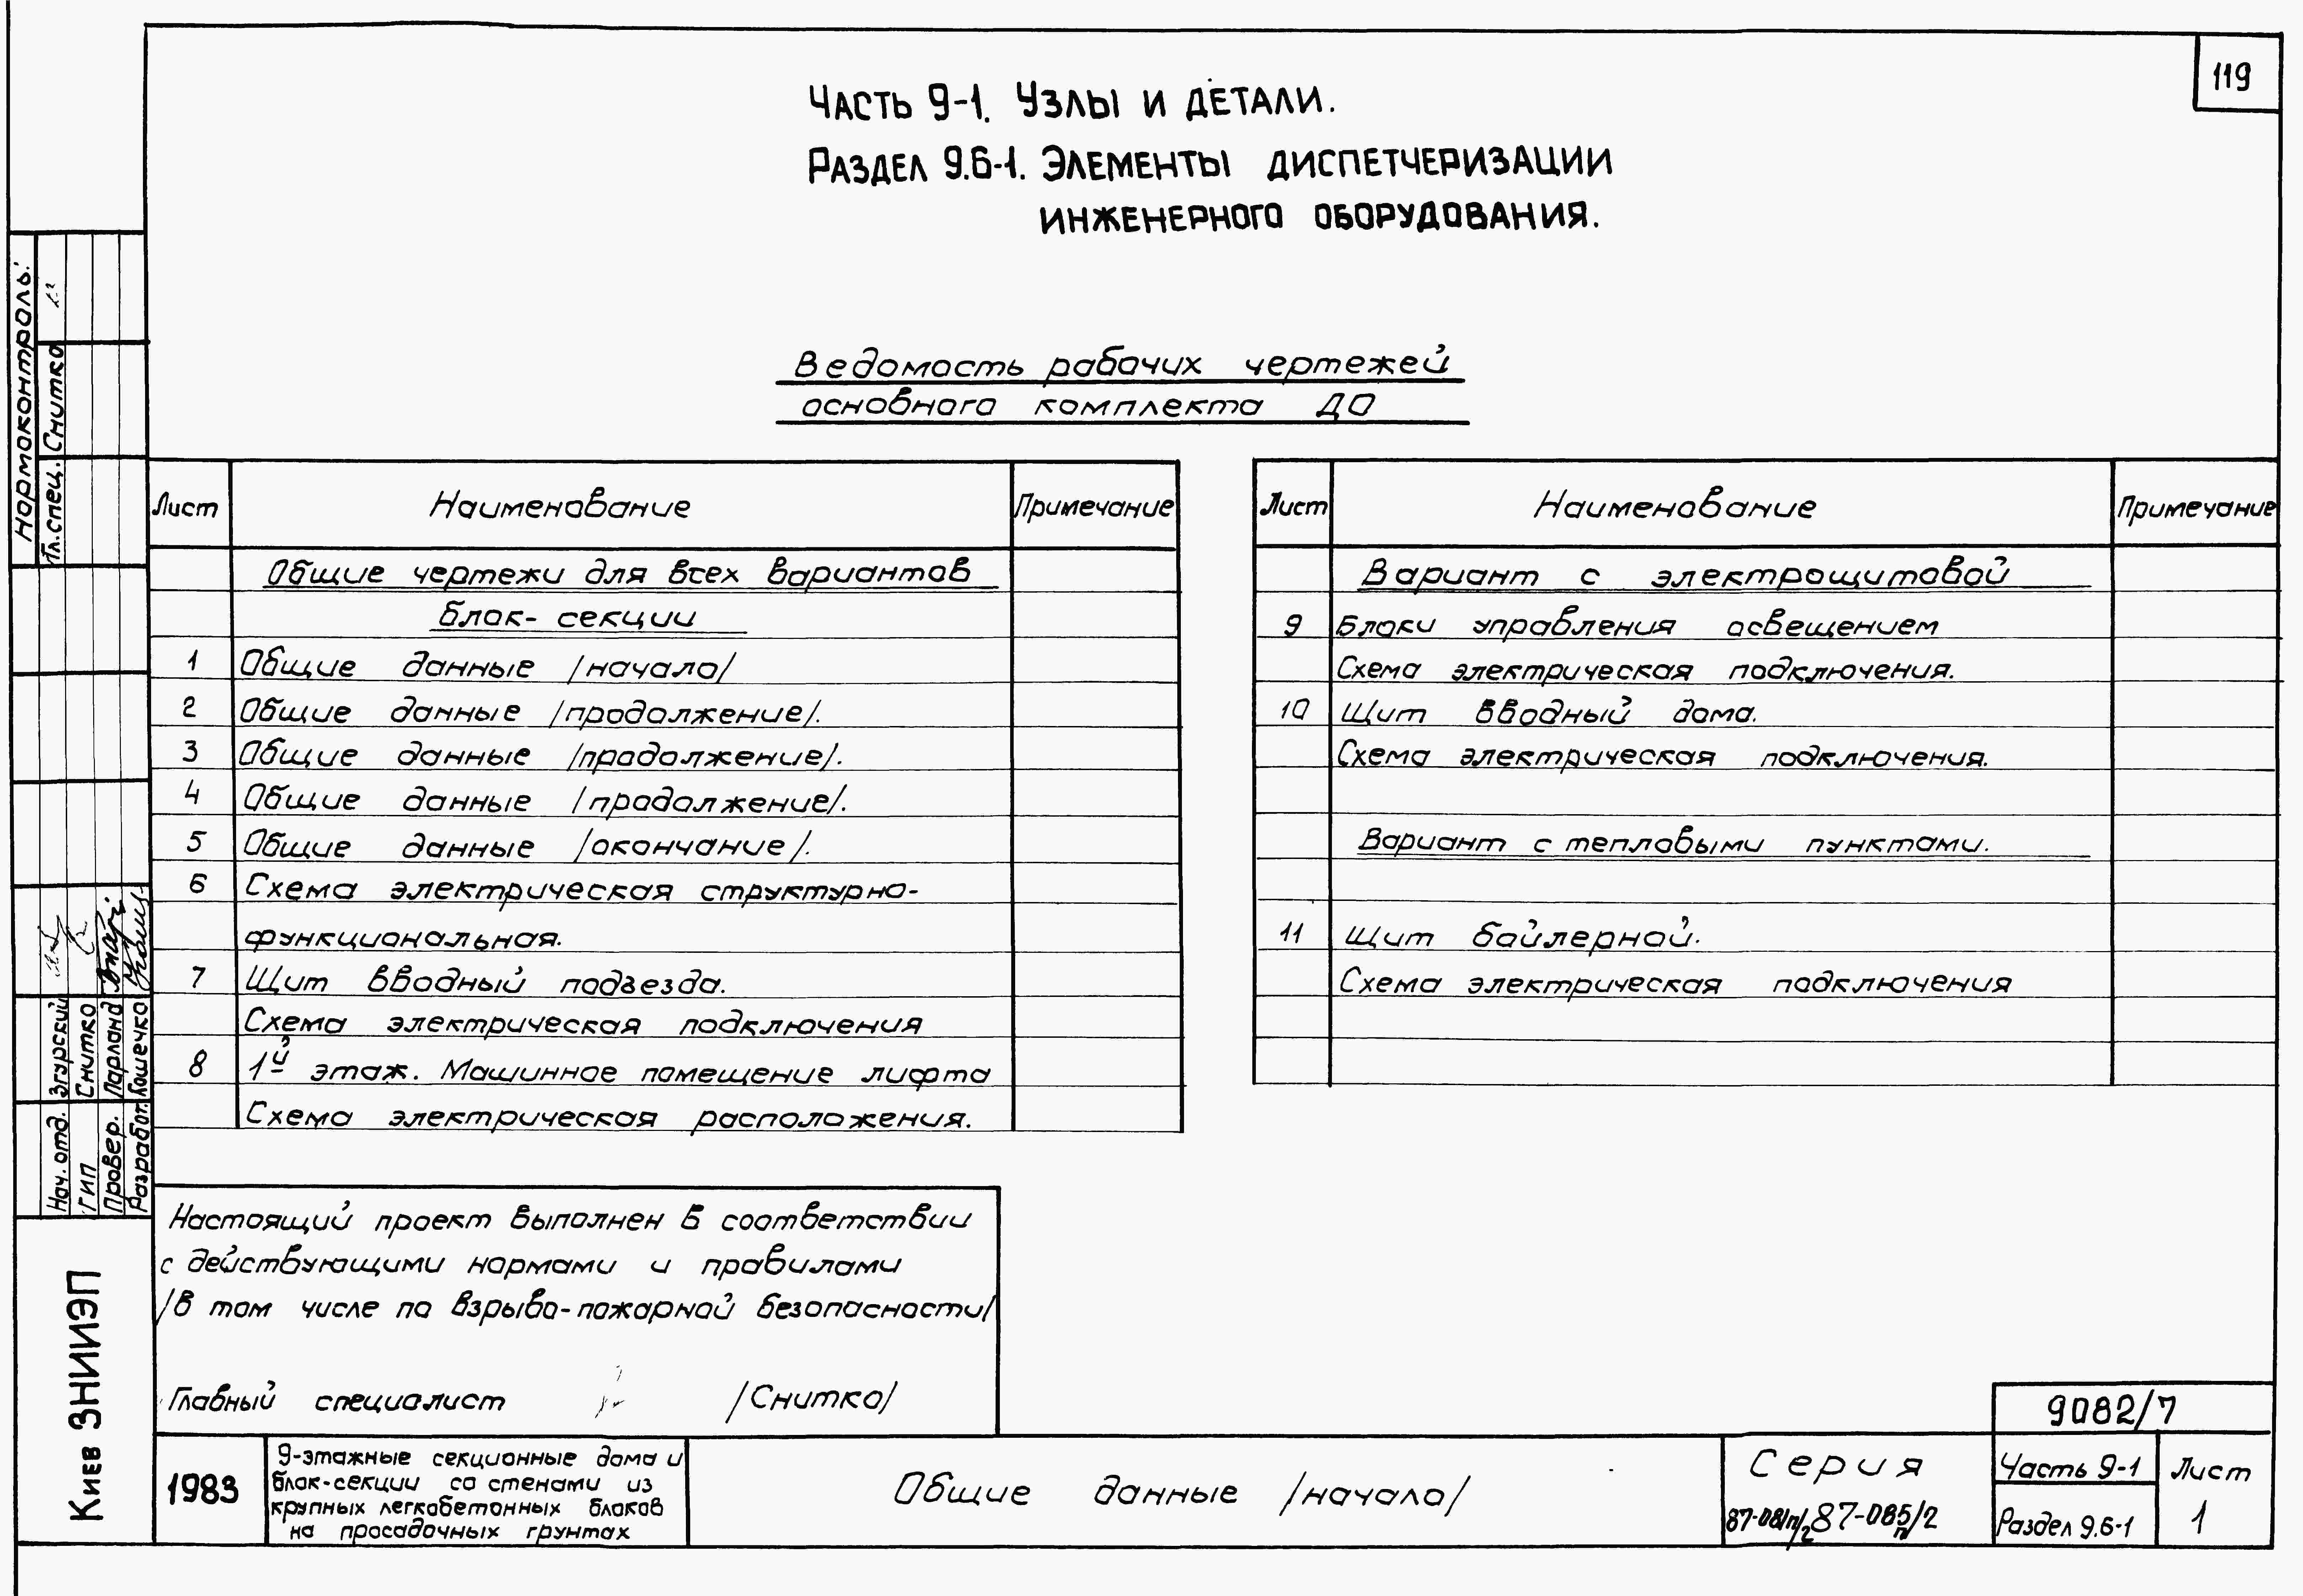 119
Часть 9-1. Узлы и детали.
Раздел 9.6-1. Элементы диспетчеризации
инженерного оборудования.
Ведомость рабочих чертежей
основного комплекта ДО
Лист Наименование Примечание
Общие чертежи для всех вариантов
блок-секции
1 Общие данные /начало/
2 Общие данные /продолжение/.
3 Общие данные /продолжение/.
4 Общие данные /продолжение/.
5 Общие данные /окончание/.
6 Схема электрическая структурно-
функциональная.
7 Щит вводный подъезда.
Схема электрическая подключения
8 1й этаж. Машинное помещение лифта
Схема электрическая расположения.
Лист Наименование Примечание
Вариант с электрощитовой
9 Блоки управления освещением
Схема электрическая подключения.
10 Щит вводный дома.
Схема электрическая подключения.
Вариант с тепловыми пунктами.
11 Щит бойлерной.
Схема электрическая подключения
Настоящий проект выполнен в соответствии
с действующими нормами и правилами
/в том числе по взрыво-пожарной безопасности/
Главный специалист /Снитко/
Нормоконтроль:
Гл.спец. Снитко
Нач. отд. Згурский
ГИП Снитко
Провер. Парланд
Разработ. Кошечко
Киев ЗНИИЭП
1983
9-этажные секционные дома и
блок-секции со стенами из
крупных легкобетонных блоков
на просадочных грунтах
Общие данные /начало/
Серия
87-081п/2 87-085п/2
9082/7
Часть 9-1
Раздел 9.6-1
Лист
1